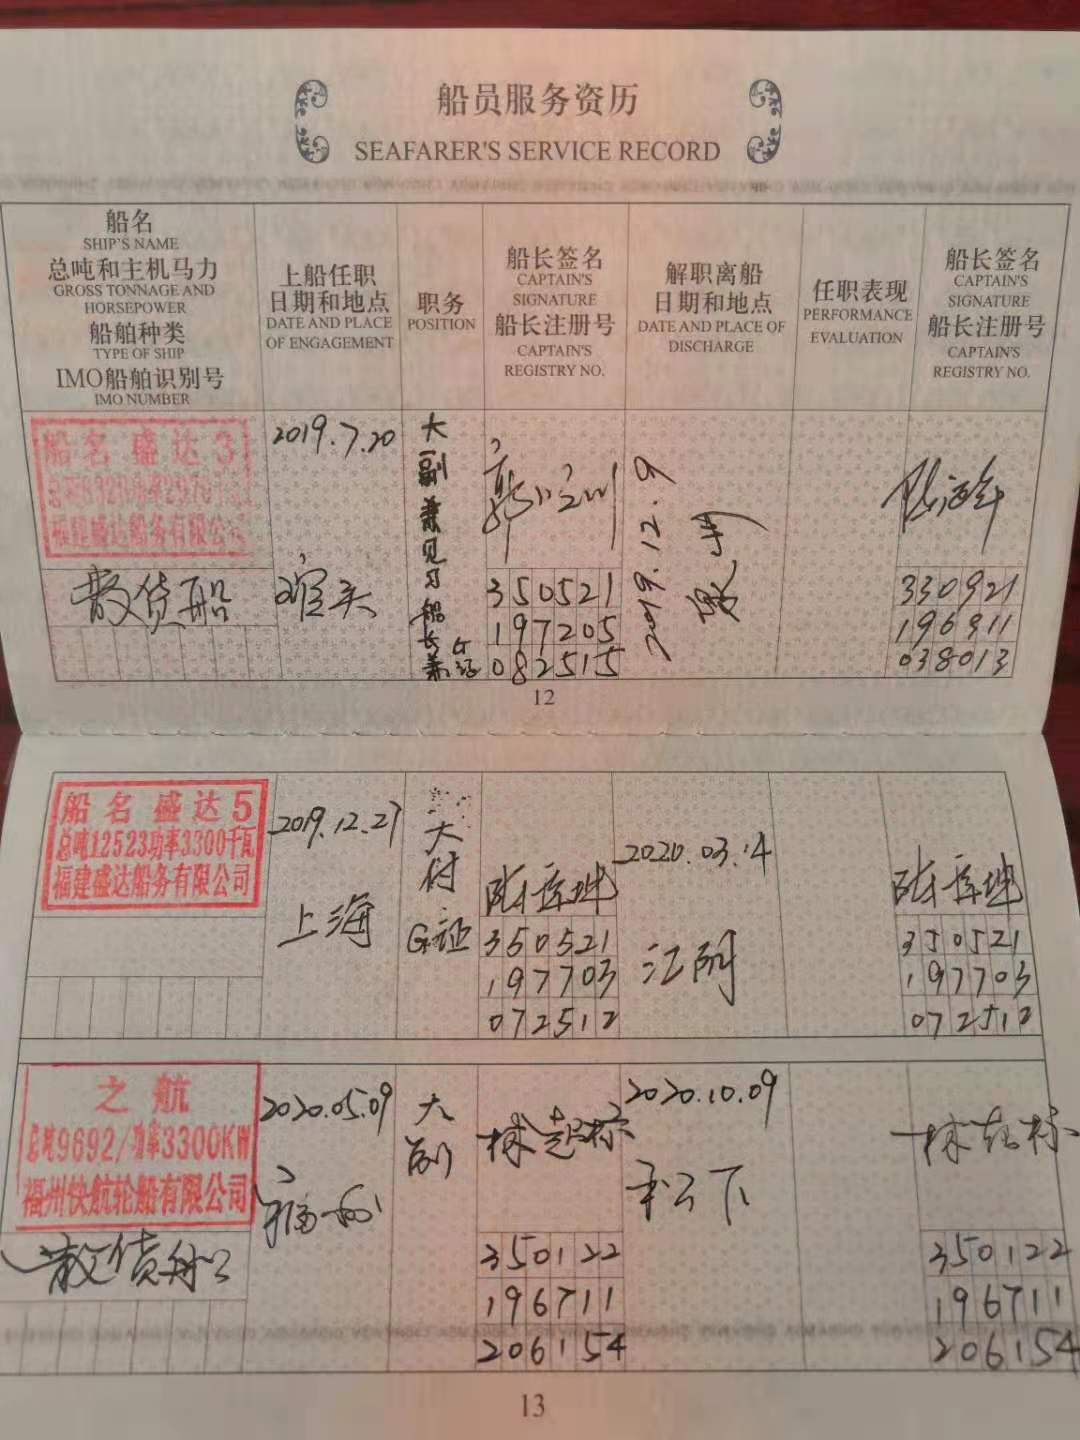 船员服务资历
SEAFARER'S SERVICE RECORD
船名
SHIP'S NAME
总吨和主机马力
GROSS TONNAGE AND
HORSEPOWER
船舶种类
TYPE OF SHIP
IMO船舶识别号
IMO NUMBER
上船任职
日期和地点
DATE AND PLACE
OF ENGAGEMENT
职务
POSITION
船长签名
CAPTAIN'S
SIGNATURE
船长注册号
CAPTAIN'S
REGISTRY NO.
解职离船
日期和地点
DATE AND PLACE OF
DISCHARGE
任职表现
PERFORMANCE
EVALUATION
船长签名
CAPTAIN'S
SIGNATURE
船长注册号
CAPTAIN'S
REGISTRY NO.
船名 盛达3
福建盛达船务有限公司
散货船
2019.7.20
大副兼见习船长兼G证
350521
197205
082515
2019.12.9
330921
196911
038013
12
船名 盛达5
总吨12523功率3300千瓦
福建盛达船务有限公司
2019.12.27
上海
大付
G证
350521
197703
072512
2020.03.14
江阴
350521
197703
072512
之航
总吨9692/功率3300KW
福州快航轮船有限公司
散货船
2020.05.09
福州
大副
350122
196711
206154
2020.10.09
松下
350122
196711
206154
13